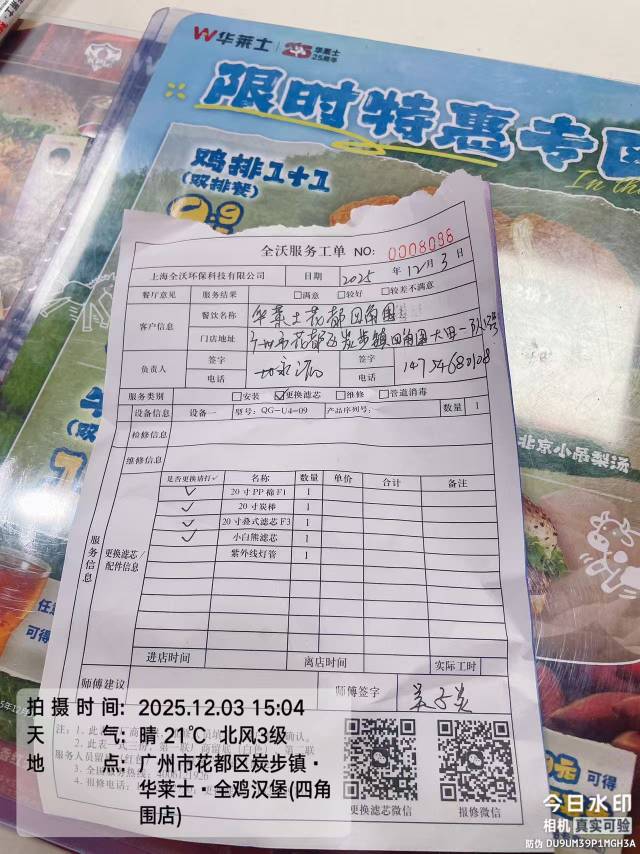 华莱士
华莱士
25周年
限时特惠专
鸡排1+1
(双排餐)
全沃服务工单 NO: 0008098
上海全沃环保科技有限公司 日期 2025 年 12 月 3 日
餐厅意见 服务结果 □满意 □较好 □较差不满意
客户信息 餐饮名称 华莱士花都四角围
门店地址 广州市花都区炭步镇四角围大田一
负责人 签字 签字
电话 电话
服务类别 □安装 ☑更换滤芯 □维修 □管道消毒
设备信息 设备一 型号: QG-U4-09 产品序列号: 数量 1
检修信息
维修信息
服务信息
更换滤芯/配件信息
是否更换请打✓ 名称 数量 单价 合计 备注
✓ 20寸PP棉F1 1
✓ 20寸炭棒 1
✓ 20寸叠式滤芯F3 1
✓ 小白熊滤芯 1
紫外线灯管 1
进店时间 离店时间 实际工时
师傅建议 师傅签字
更换滤芯微信 报修微信
北京小吊梨汤
可得
可得
拍摄时间: 2025.12.03 15:04
天气: 晴 21℃ 北风3级
地点: 广州市花都区炭步镇·
华莱士·全鸡汉堡(四角
围店)
今日水印
相机 真实可验
防伪 DU9UM39P1MGH3A